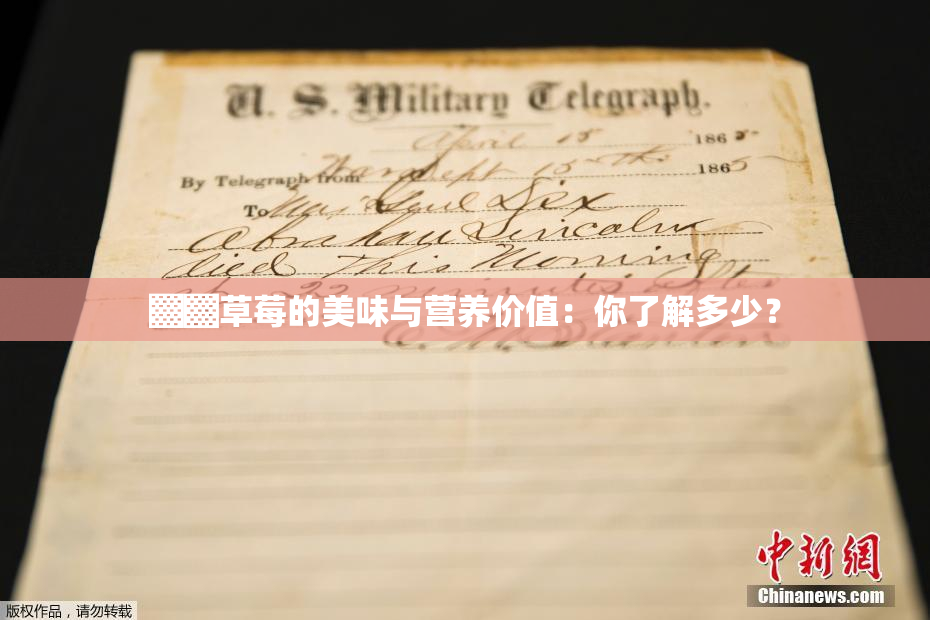 U. S. Military Telegraph.
April 15 1865
By Telegraph from War Dept 15th 1865
To Maj Genl Dix
Abraham Lincoln
died This Morning
at 22 minutes after
▓▓草莓的美味与营养价值：你了解多少？
E. M. Stanton
中新网
Chinanews.com
版权作品，请勿转载